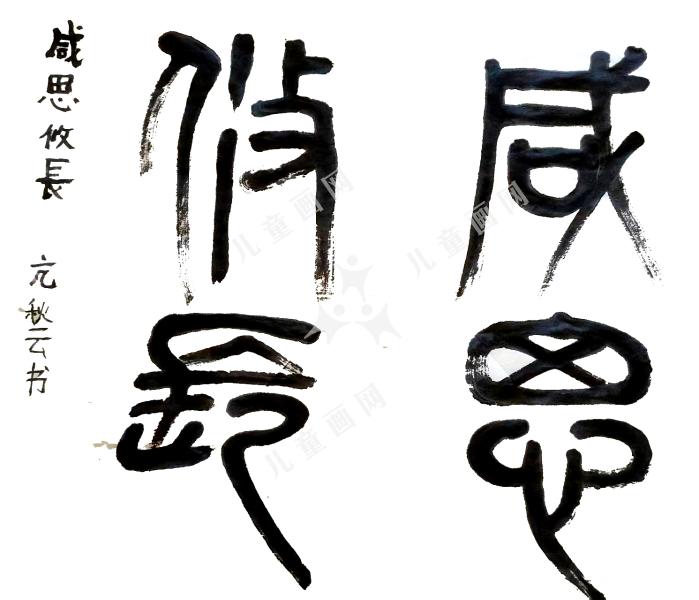 咸思
攸長
咸思攸長 亢秋云书
儿童画网
儿童画网
儿童画网